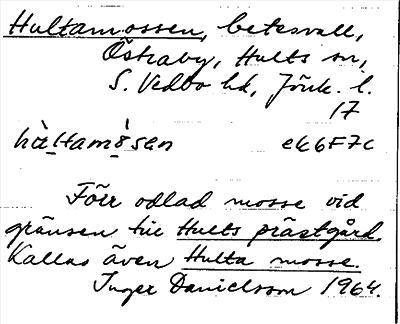 Hultamossen, betesvall,
Östraby, Hults sn,
S. Vedbo hd, Jönk. l.
17
hùltamósen e66F7c
Förr odlad mosse vid
gränsen till Hults prästgård.
Kallas även Hulta mosse.
Inger Danielsson 1964.